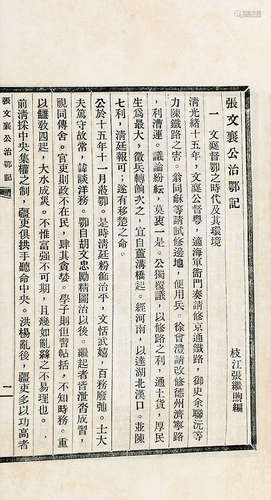 張文襄公治鄂記
枝江張繼煦編
一 文襄督鄂之時代及其環境
清光緒十五年，文襄公督粵，適海軍衙門奏請修京通鐵路，御史余聯沅等
力陳鐵路之害。翁同龢等請試修邊地，便用兵。徐會澧請改修德州濟寧路
，利漕運。議論紛紜，莫衷一是。公獨覆議，以修路之利，通土貨，厚民
生爲最大，徵兵轉餉次之，宜自蘆溝橋起。經河南，以達湖北漢口。並陳
七利，清廷報可；遂有移楚之命。
公於十五年十一月蒞鄂。是時清廷粉飾治平，文恬武嬉，百務廢弛。士大
夫篤守故常，諱談洋務。鄂自胡文忠勵精圖治以後。繼起者皆泄沓成習，
視同傳舍。官吏則政不在民，肆其貪婪。學子則但習帖括，不知時務。重
以四起，大水成災。不惟富強不可期，且幾如亂絲之不易理也。
前清採中央集權之制，疆吏俱拱手聽命中央。洪楊亂後，疆吏多以功高者
張文襄公治鄂記
一